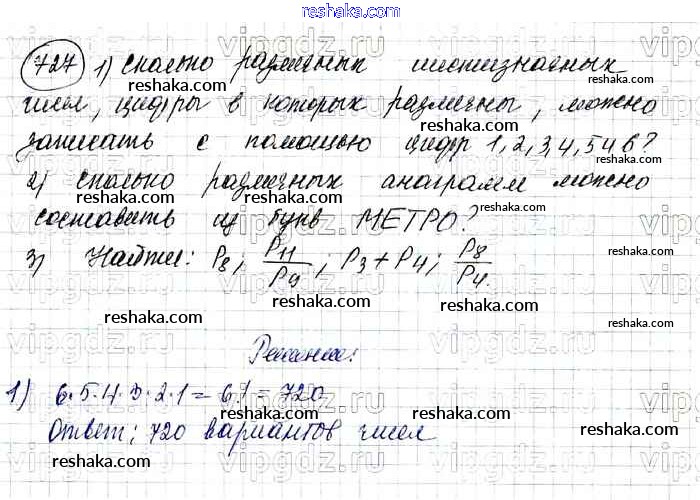 reshaka.com
727 1) Сколько различных шестизначных
чисел, цифры в которых различны, можно
записать с помощью цифр 1, 2, 3, 4, 5 и 6?
2) Сколько различных анаграмм можно
составить из букв МЕТРО?
3) Найти: P8; P11/P9; P3 + P4; P8/P4.
Решение:
1) 6·5·4·3·2·1 = 6! = 720
Ответ: 720 вариантов чисел